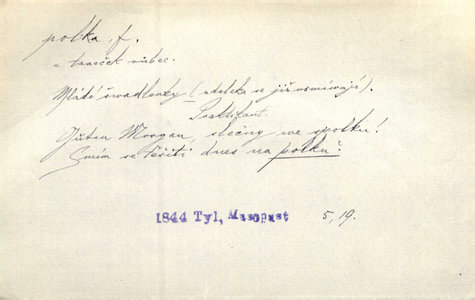 polka, f.
a taneček vůbec.
Mladé švadlenky (zdaleka se již usmívají).
Praktikant.
Gúten Morgan, slečny ve spolku!
Smím se těšiti dnes na polku?
1844 Tyl, Masopust 5, 19.